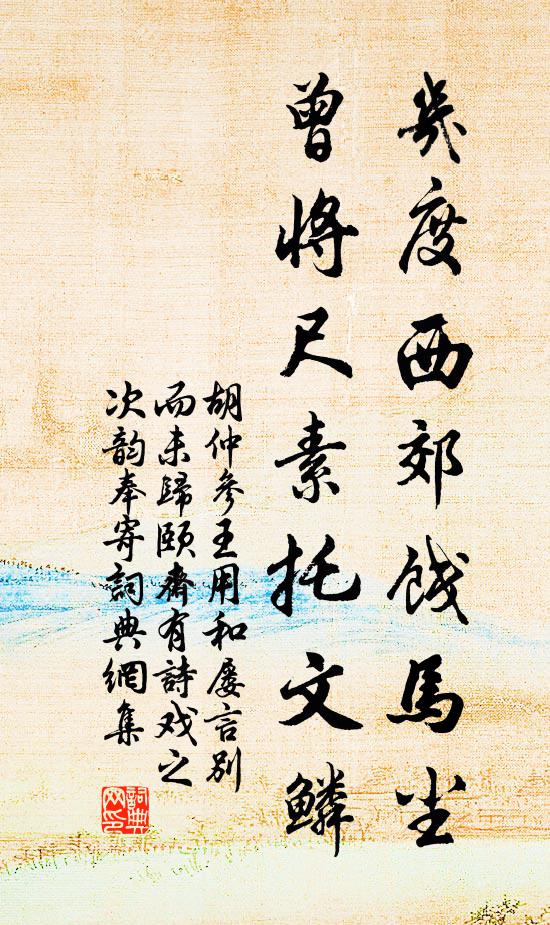 幾度西郊餞馬尘
曾將尺素托文鱗
胡仲參王用和屡言别
而未歸頤齋有詩戏之
次韵奉寄詞典網集
詞典網印